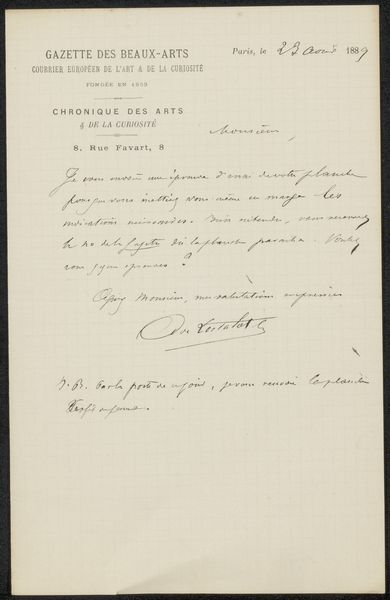 GAZETTE DES BEAUX-ARTS
COURRIER EUROPÉEN DE L'ART & DE LA CURIOSITÉ
FONDÉE EN 1859
CHRONIQUE DES ARTS
& DE LA CURIOSITÉ
8, Rue Favart, 8
Paris, le 23 août 1889
Monsieur,
Je vous envoie une épreuve d'essai de votre planche
pour que vous mettiez vous même en marge les
indications nécessaires. Bien entendu, vous recevrez
le no de la Gazette où la planche paraîtra. Voulez
vous épreuves ?
Agréez Monsieur, mes salutations empressées
de Lostalot
N. B. Par la poste de ce jour, je vous renvoie la planche